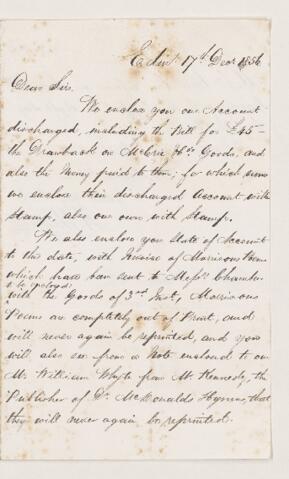 Edinr. 17th Decr. 1856
Dear Sir.
We enclose you our Account
discharged, including the Bill for £45 -
the Drawback on McCrie &Co's Goods, and
also the Money paid to them; for which sums
we enclose their discharged Account with
Stamp, also our own with Stamp.
We also enclose you State of Account
to this date, with Invoice of Morrisons Poems
which have been sent to Messrs. Chambers
to be enclosed
with the Goods of 3rd Inst, Morrisons
Poems are completely out of Print, and
will never again be reprinted, and you
will also see from a Note enclosed to our
Mr. William Whyte from Mr. Kennedy, the
Publisher of Dr. McDonalds Hymns, that
they will never again be reprinted.